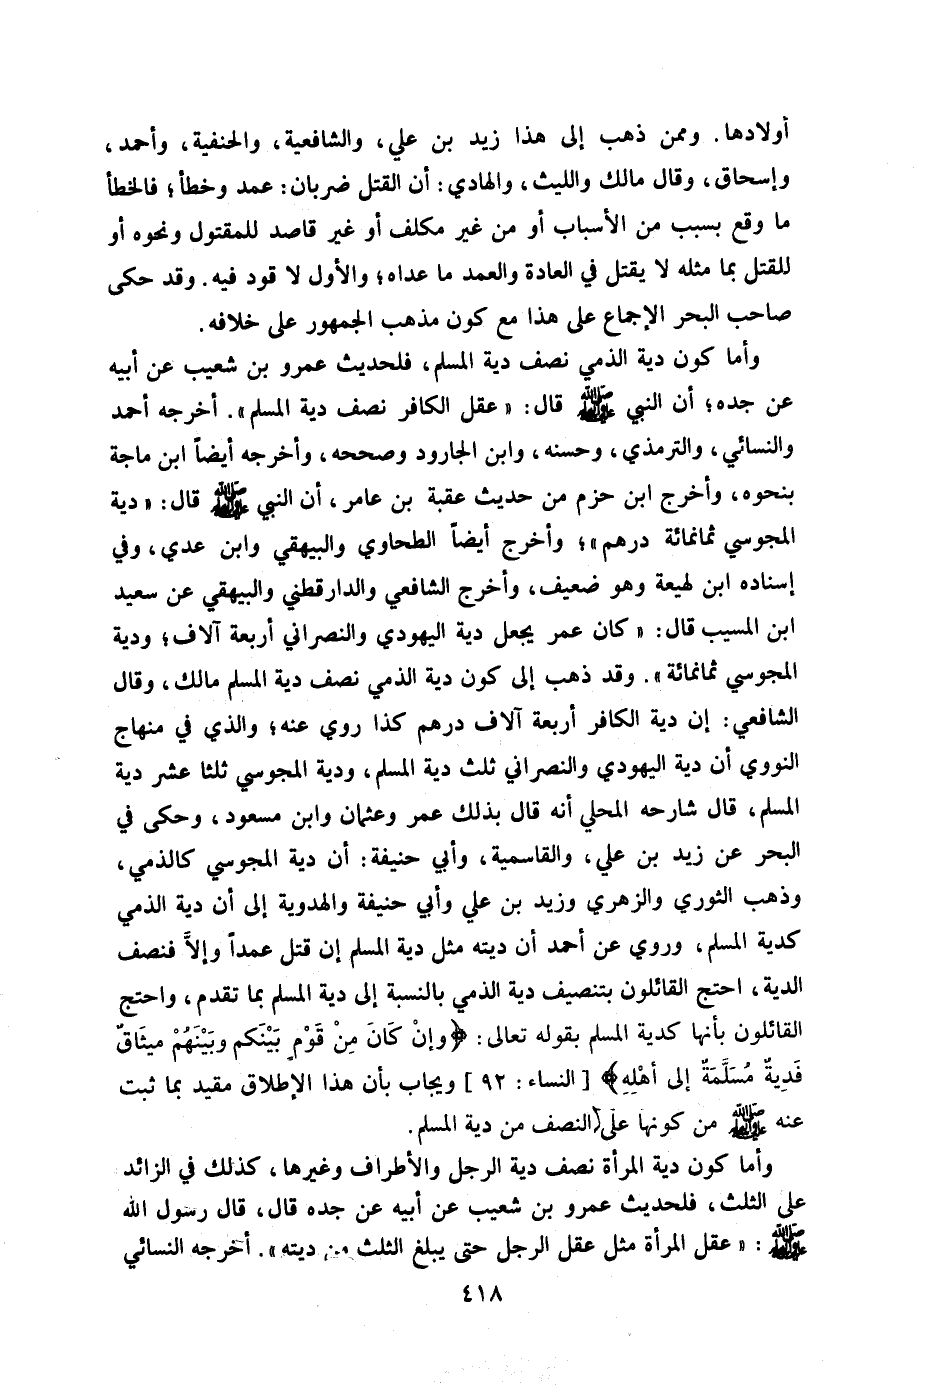 أولادها. وممن ذهب إلى هذا زيد بن علي، والشافعية، والحنفية، وأحمد،
وإسحاق، وقال مالك والليث، والهادي: أن القتل ضربان: عمد وخطأ؛ فالخطأ
ما وقع بسبب من الأسباب أو من غير مكلف أو غير قاصد للمقتول ونحوه أو
للقتل بما مثله لا يقتل في العادة والعمد ما عداه؛ والأول لا قود فيه. وقد حكى
صاحب البحر الإجماع على هذا مع كون مذهب الجمهور على خلافه.
وأما كون دية الذمي نصف دية المسلم، فلحديث عمرو بن شعيب عن أبيه
عن جده؛ أن النبي ﷺ قال: «عقل الكافر نصف دية المسلم». أخرجه أحمد
والنسائي، والترمذي، وحسنه، وابن الجارود وصححه، وأخرجه أيضاً ابن ماجة
بنحوه، وأخرج ابن حزم من حديث عقبة بن عامر، أن النبي ﷺ قال: «دية
المجوسي ثمانمائة درهم»؛ وأخرج أيضاً الطحاوي والبيهقي وابن عدي، وفي
إسناده ابن لهيعة وهو ضعيف، وأخرج الشافعي والدارقطني والبيهقي عن سعيد
ابن المسيب قال: «كان عمر يجعل دية اليهودي والنصراني أربعة آلاف؛ ودية
المجوسي ثمانمائة». وقد ذهب إلى كون دية الذمي نصف دية المسلم مالك، وقال
الشافعي: إن دية الكافر أربعة آلاف درهم كذا روي عنه؛ والذي في منهاج
النووي أن دية اليهودي والنصراني ثلث دية المسلم، ودية المجوسي ثلثا عشر دية
المسلم، قال شارحه المحلي أنه قال بذلك عمر وعثمان وابن مسعود، وحكى في
البحر عن زيد بن علي، والقاسمية، وأبي حنيفة: أن دية المجوسي كالذمي،
وذهب الثوري والزهري وزيد بن علي وأبي حنيفة والهدوية إلى أن دية الذمي
كدية المسلم، وروي عن أحمد أن ديته مثل دية المسلم إن قتل عمداً وإلاَّ فنصف
الدية، احتج القائلون بتنصيف دية الذمي بالنسبة إلى دية المسلم بما تقدم، واحتج
القائلون بأنها كدية المسلم بقوله تعالى: ﴿وإنْ كَانَ مِنْ قَوْمٍ بَيْنَكم وبَيْنَهُمْ ميثَاقٌ
فَدِيةٌ مُسَلَّمَةٌ إلى أهْلِهِ﴾ [النساء: ٩٢] ويجاب بأن هذا الإطلاق مقيد بما ثبت
عنه ﷺ من كونها على النصف من دية المسلم.
وأما كون دية المرأة نصف دية الرجل والأطراف وغيرها، كذلك في الزائد
على الثلث، فلحديث عمرو بن شعيب عن أبيه عن جده قال، قال رسول الله
ﷺ: «عقل المرأة مثل عقل الرجل حتى يبلغ الثلث من ديته». أخرجه النسائي
٤١٨